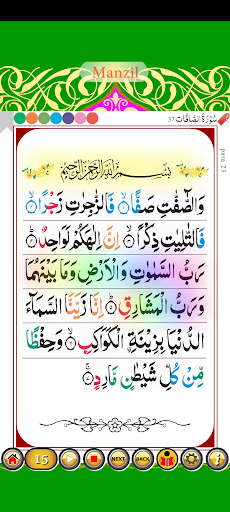 Manzil
سُوْرَةُ الصَّافَّات 37
para 23
بِسْمِ اللّٰهِ الرَّحْمٰنِ الرَّحِيْمِ
وَالصّٰٓفّٰتِ صَفًّا ۙ﴿۱﴾ فَالزّٰجِرٰتِ زَجْرًا ۙ﴿۲﴾
فَالتّٰلِيٰتِ ذِكْرًا ۙ﴿۳﴾ اِنَّ اِلٰهَكُمْ لَوَاحِدٌ ؕ﴿۴﴾
رَبُّ السَّمٰوٰتِ وَالْاَرْضِ وَمَا بَيْنَهُمَا
وَرَبُّ الْمَشَارِقِ ؕ﴿۵﴾ اِنَّا زَيَّنَّا السَّمَآءَ
الدُّنْيَا بِزِيْنَةِ اۨلْكَوَاكِبِ ۙ﴿۶﴾ وَحِفْظًا
مِّنْ كُلِّ شَيْطٰنٍ مَّارِدٍ ۚ﴿۷﴾
15
NEXT
BACK